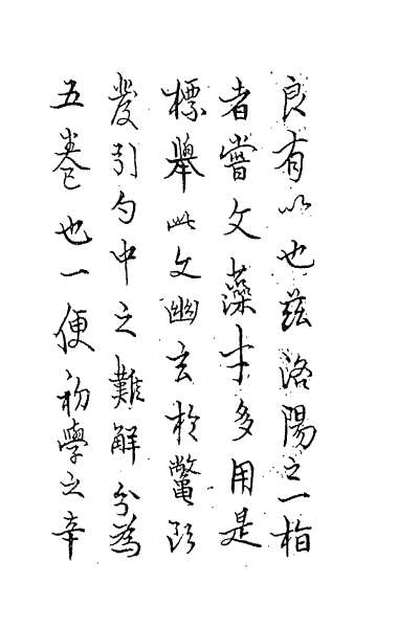 良有以也茲洛陽之一指
者嘗文藻才多用是
標舉此文幽玄於鼇頭
發引句中之難解分為
五卷也一便初學之幸